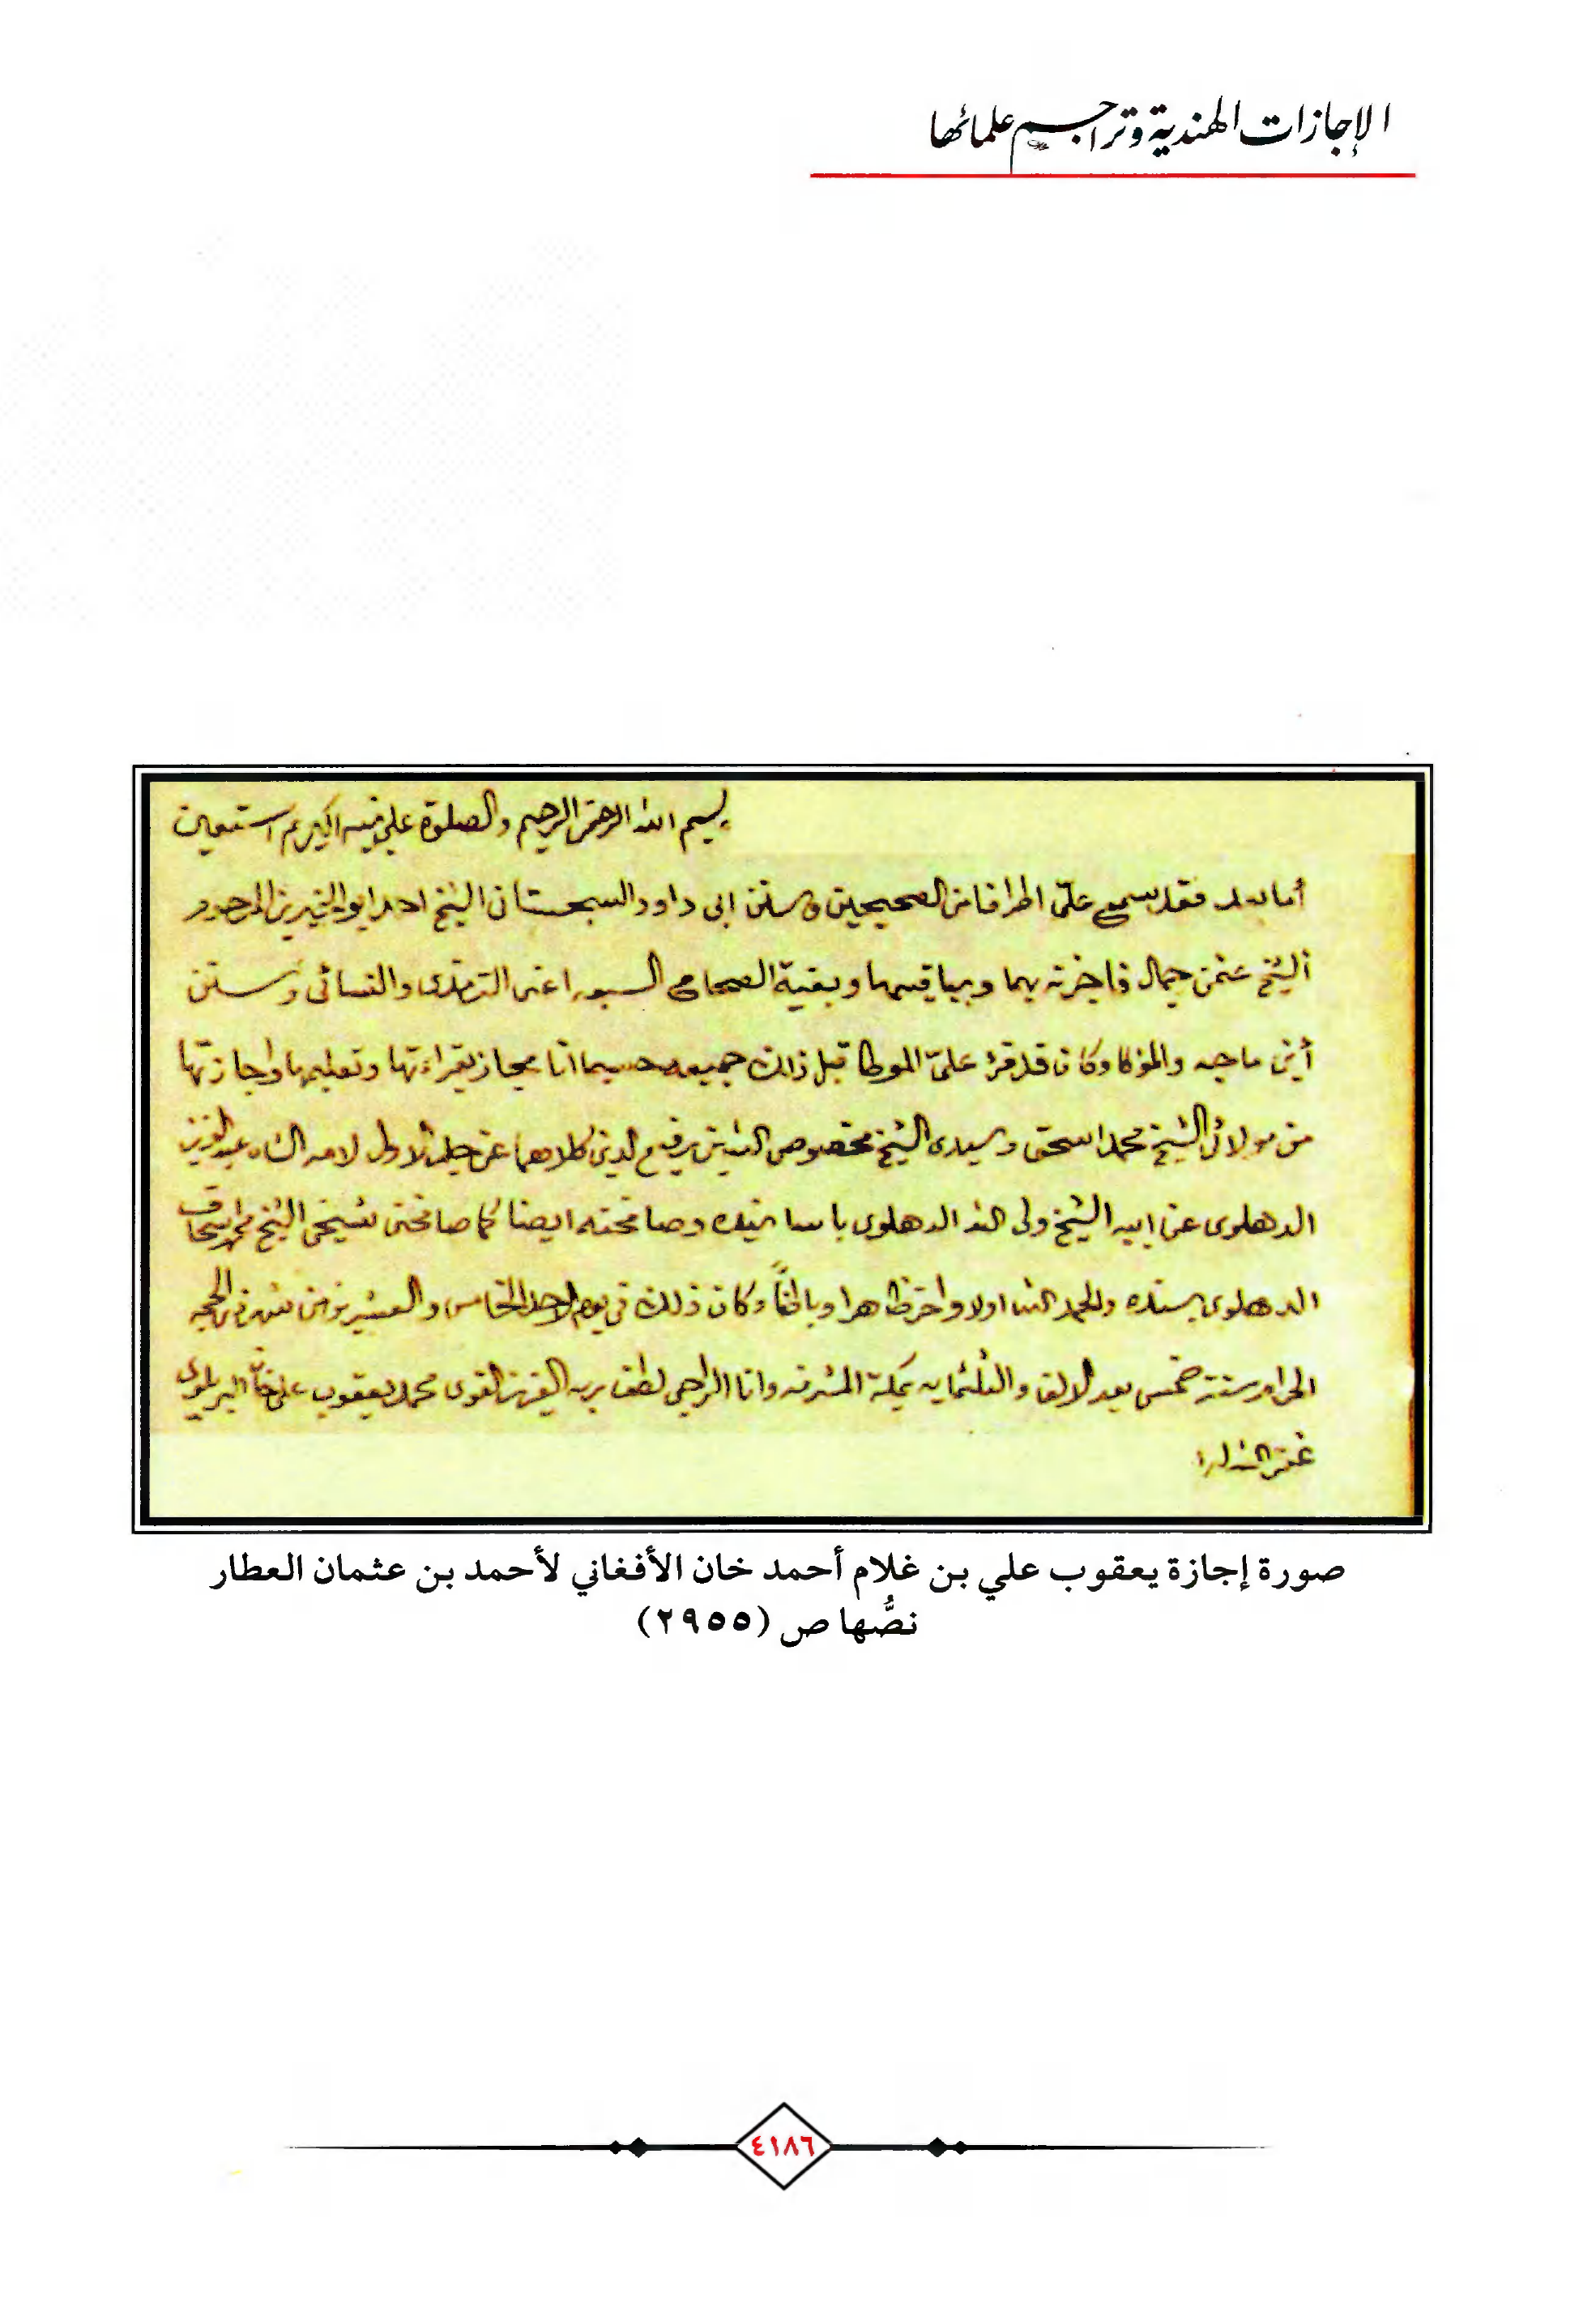 الإجازات الهندية وتراجم علمائها
بسم الله الرحمن الرحيم والصلوة على نبيه الكريم استعين
أما بعد فقد سمع علىّ اطرافا من الصحيحين وسنن ابى داود السجستانى الشيخ احمد ابو الخير بن المرحوم
الشيخ عثمن جمال فاجزته بهما وبباقيهما وبقية الصحاح السبعه اعنى الترمذى والنسائى وسنن
أبن ماجه والموطا وكان قد قرئ علىّ الموطا قبل ذلك جميعه حسبما انا مجاز بقراءتها وتعليمها واجازتها
من مولائى الشيخ محمد اسحق وسيدى الشيخ مخصوص الله بن رفيع الدين كلاهما عن جد الاول لامه الشاه عبد العزيز
الدهلوى عن ابيه الشيخ ولى الله الدهلوى باسانيده وصافحته ايضا كما صافحنى شيخى الشيخ محمد اسحاق
الدهلوى بسنده والحمد لله اولا واخرا ظاهرا وباطناً وكان ذلك فى يوم الاحد الخامس والعشرين من شهر ذى الحجه
الحرام سنة خمس بعد الالف والثلثمايه بمكة المشرفه وانا الراجى لطف ربه العزيز القوى محمد يعقوب على خان البريلوى
غفر الله له
صورة إجازة يعقوب علي بن غلام أحمد خان الأفغاني لأحمد بن عثمان العطار
نصُّها ص (٢٩٥٥)
٤١٨٦